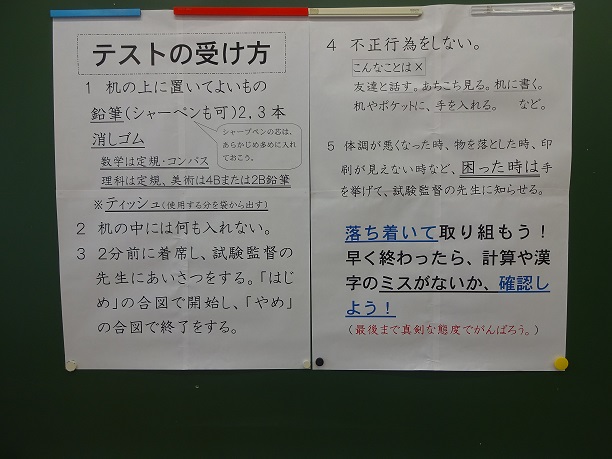 テストの受け方
1 机の上に置いてよいもの
鉛筆(シャーペンも可)2,3本
消しゴム
シャープペンの芯は、
あらかじめ多めに入れ
ておこう。
数学は定規・コンパス
理科は定規、美術は4Bまたは2B鉛筆
※ティッシュ(使用する分を袋から出す)
2 机の中には何も入れない。
3 2分前に着席し、試験監督の
先生にあいさつをする。「はじ
め」の合図で開始し、「やめ」
の合図で終了をする。
4 不正行為をしない。
こんなことは×
友達と話す。あちこち見る。机に書く。
机やポケットに、手を入れる。 など。
5 体調が悪くなった時、物を落とした時、印
刷が見えない時など、困った時は手
を挙げて、試験監督の先生に知らせる。
落ち着いて取り組もう!
早く終わったら、計算や漢
字のミスがないか、確認し
よう!
(最後まで真剣な態度でがんばろう。)